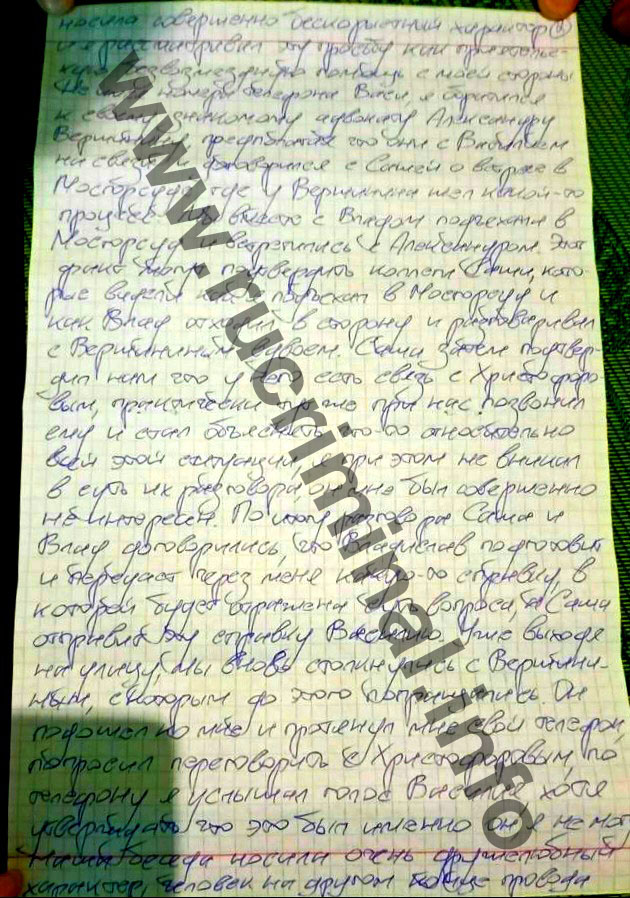 носила совершенно бескорыстный характер 2
и я рассматривал эту просьбу как приятельс-
кую безвозмездную помощь с моей стороны
номера телефона Васи, я обратился
к своему знакомому адвокату Александру
Вершинину предполагая что они с Василием
на связи и договорился с Сашей о встрече в
Мосгорсуде, где у Вершинина шел какой-то
процесс. Мы вместе с Владом подъехали в
Мосгорсуд и встретились с Александром. Этот
факт могут подтвердить коллеги Саши, кото-
рые видели как я подъехал в Мосгорсуд и
как Влад отходил в сторону и разговаривал
с Вершининым вдвоем. Саша затем подтвер-
дил нам что у него есть связь с Христофоро-
вым, практически тут же при нас позвонил
ему и стал объяснять что-то относительно
всей этой ситуации, я при этом не вникал
в суть их разговора он мне был совершенно
не интересен. По итогу разговора Саша и
Влад договорились, что Владислав подготовит
и передаст через меня какую-то справку, в
которой будет отражена суть вопроса, а Саша
отправит эту справку Василию. Уже выходя
на улицу, мы вновь столкнулись с Вершини-
ным, с которым до этого попрощались. Он
подошел ко мне и протянул мне свой телефон,
попросил переговорить с Христофоровым, по
телефону я услышал голос Василия хотя
утверждать что это был именно он я не мог
Наша беседа носила очень дружелюбный
характер, человек на другом конце провода
www.rucriminal.info